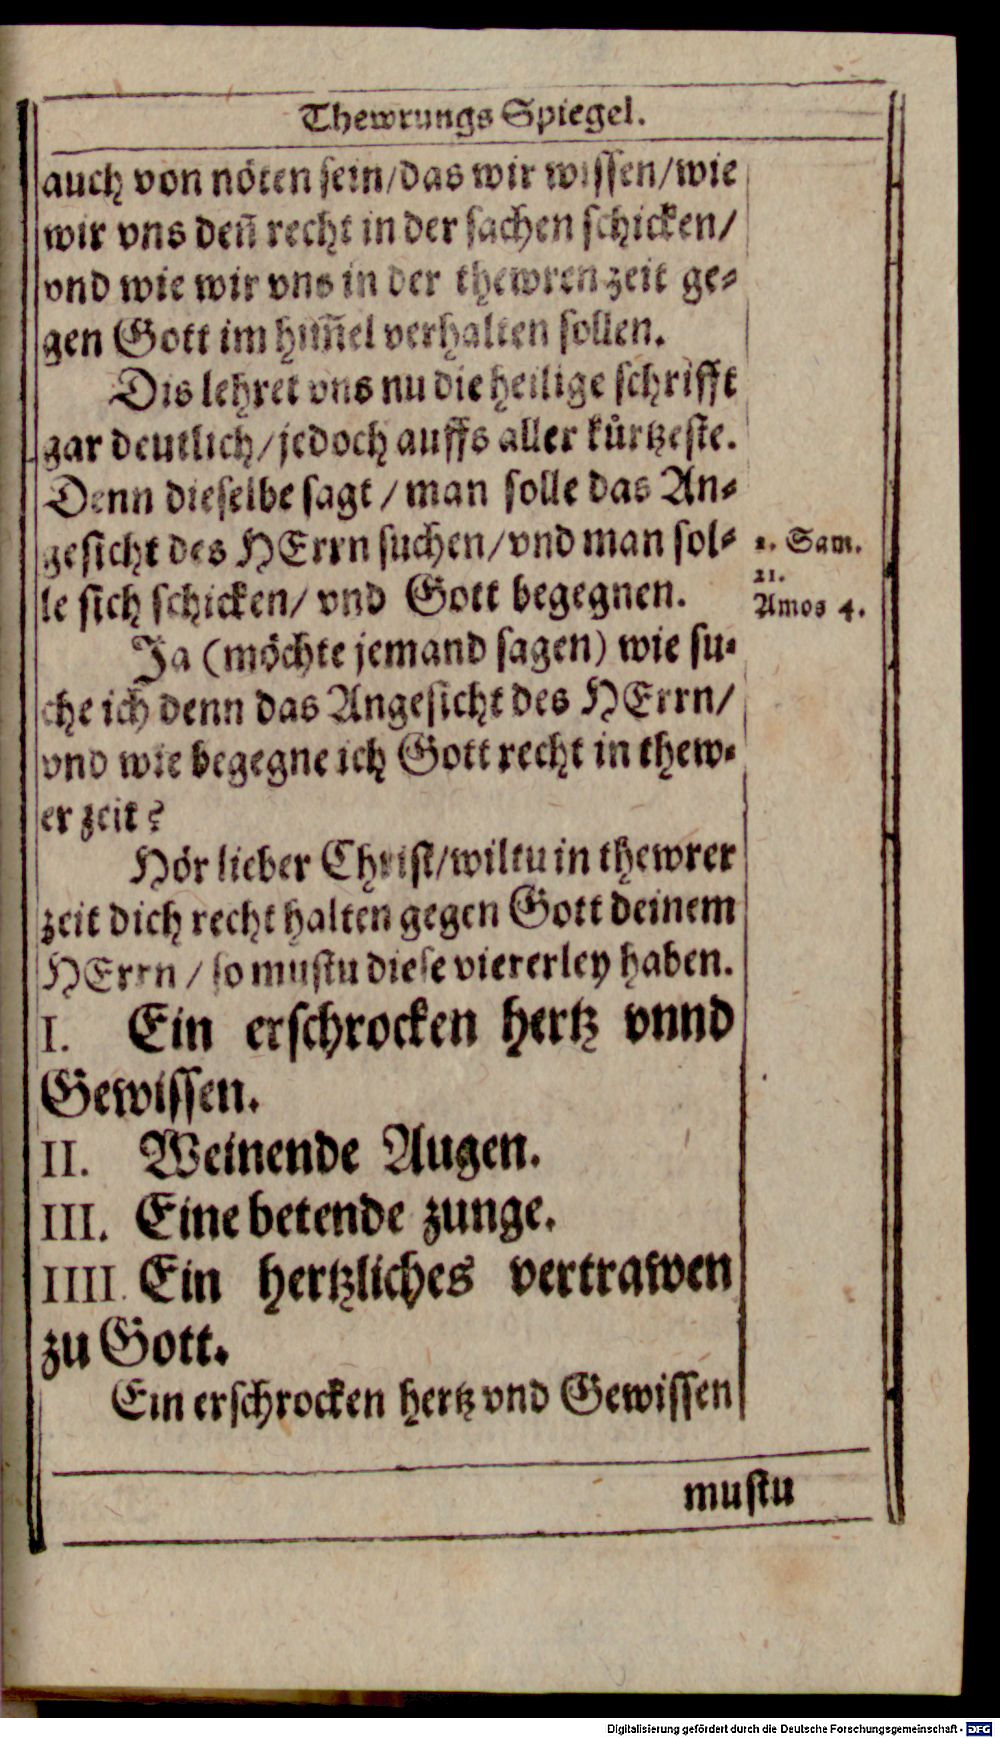 Thewrungs Spiegel.
auch von nöten sein/das wir wissen/wie
wir vns deñ recht in der sachen schicken/
vnd wie wir vns in der thewren zeit ge-
gen Gott im him̃el verhalten sollen.
Dis lehret vns nu die heilige schrifft
gar deutlich/jedoch auffs aller kürtzeste.
Denn dieselbe sagt / man solle das An-
gesicht des HErrn suchen/vnd man sol-
le sich schicken/ vnd Gott begegnen.
2. Sam.
21.
Amos 4.
Ja (möchte jemand sagen) wie su-
che ich denn das Angesicht des HErrn/
vnd wie begegne ich Gott recht in thew-
er zeit?
Hör lieber Christ/wiltu in thewrer
zeit dich recht halten gegen Gott deinem
HErrn / so mustu diese viererley haben.
I. Ein erschrocken hertz vnnd
Gewissen.
II. Weinende Augen.
III. Eine betende zunge.
IIII. Ein hertzliches vertrawen
zu Gott.
Ein erschrocken hertz vnd Gewissen
mustu
Digitalisierung gefördert durch die Deutsche Forschungsgemeinschaft - DFG